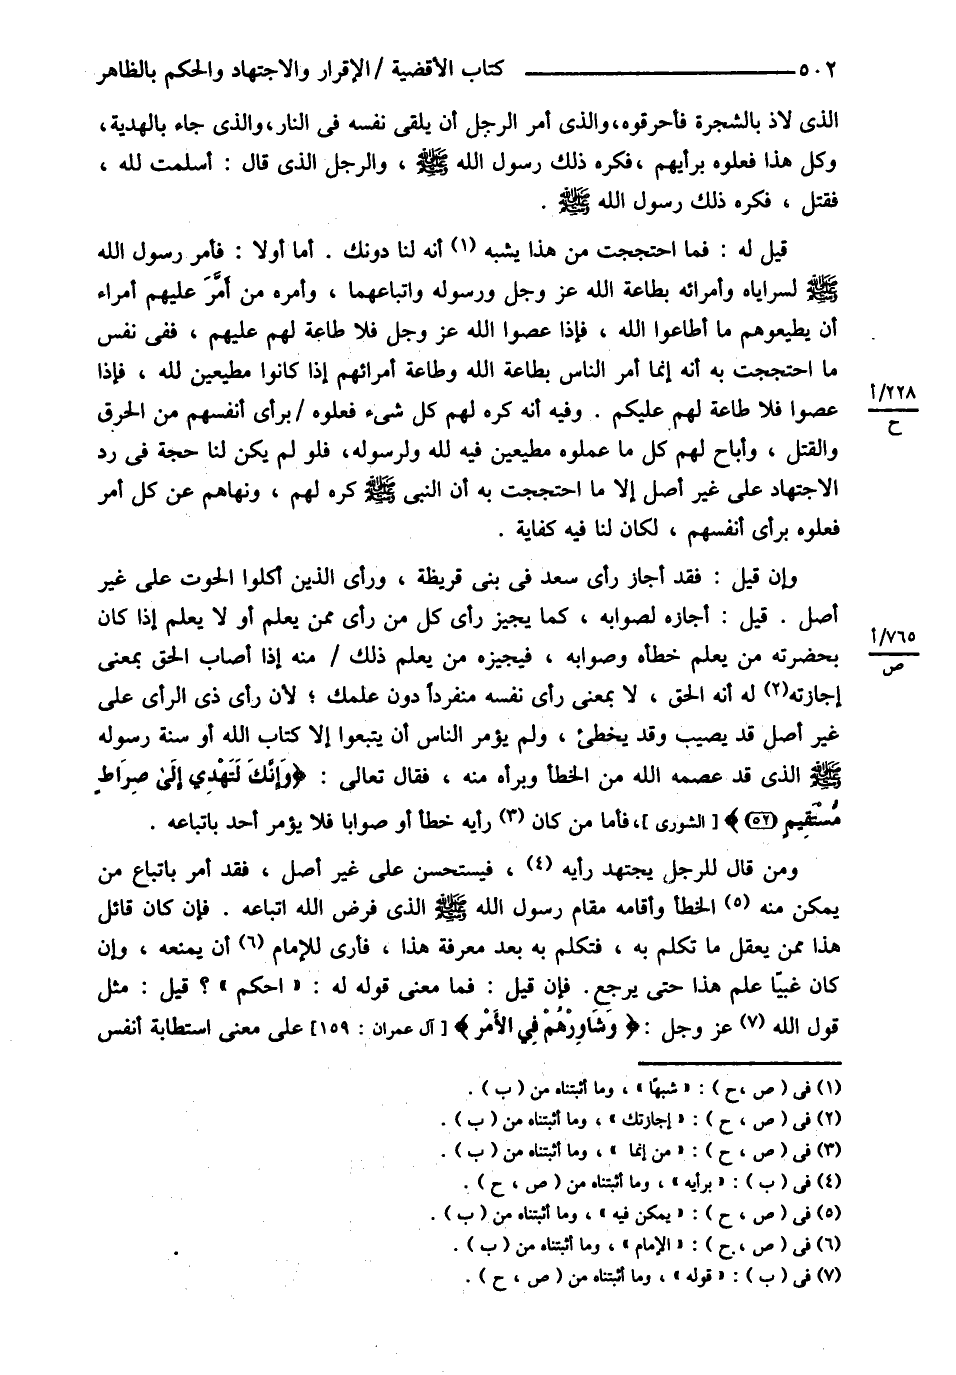 ٥٠٢ ـــــــــــــــــــ كتاب الأقضية / الإقرار والاجتهاد والحكم بالظاهر
الذى لاذ بالشجرة فأحرقوه،والذى أمر الرجل أن يلقى نفسه فى النار،والذى جاء بالهدية،
وكل هذا فعلوه برأيهم ،فكره ذلك رسول الله ﷺ ، والرجل الذى قال : أسلمت لله ،
فقتل ، فكره ذلك رسول الله ﷺ .
قيل له : فما احتججت من هذا يشبه (١) أنه لنا دونك . أما أولا : فأمر رسول الله
ﷺ لسراياه وأمرائه بطاعة الله عز وجل ورسوله واتباعهما ، وأمره من أَمَّرَ عليهم أمراء
أن يطيعوهم ما أطاعوا الله ، فإذا عصوا الله عز وجل فلا طاعة لهم عليهم ، ففى نفس
ما احتججت به أنه إنما أمر الناس بطاعة الله وطاعة أمرائهم إذا كانوا مطيعين لله ، فإذا
١/٢٢٨
عصوا فلا طاعة لهم عليكم . وفيه أنه كره لهم كل شىء فعلوه /برأى أنفسهم من الحرق
ح
والقتل ، وأباح لهم كل ما عملوه مطيعين فيه لله ولرسوله، فلو لم يكن لنا حجة فى رد
الاجتهاد على غير أصل إلا ما احتججت به أن النبى ﷺ كره لهم ، ونهاهم عن كل أمر
فعلوه برأى أنفسهم ، لكان لنا فيه كفاية .
وإن قيل : فقد أجاز رأى سعد فى بنى قريظة ، ورأى الذين أكلوا الحوت على غير
أصل . قيل : أجازه لصوابه ، كما يجيز رأى كل من رأى ممن يعلم أو لا يعلم إذا كان
١/٧٦٥
بحضرته من يعلم خطأه وصوابه ، فيجيزه من يعلم ذلك / منه إذا أصاب الحق بمعنى
ص
إجازته(٢) له أنه الحق ، لا بمعنى رأى نفسه منفرداً دون علمك ؛ لأن رأى ذى الرأى على
غير أصل قد يصيب وقد يخطئ ، ولم يؤمر الناس أن يتبعوا إلا كتاب الله أو سنة رسوله
ﷺ الذى قد عصمه الله من الخطأ وبرأه منه ، فقال تعالى : ﴿وَإِنَّكَ لَتَهْدِي إِلَىٰ صِرَاطٍ
مُّسْتَقِيمٍ (٥٢)﴾ [ الشورى ]،فأما من كان (٣) رأيه خطأ أو صوابا فلا يؤمر أحد باتباعه .
ومن قال للرجل يجتهد رأيه (٤) ، فيستحسن على غير أصل ، فقد أمر باتباع من
يمكن منه (٥) الخطأ وأقامه مقام رسول الله ﷺ الذى فرض الله اتباعه . فإن كان قائل
هذا ممن يعقل ما تكلم به ، فتكلم به بعد معرفة هذا ، فأرى للإمام (٦) أن يمنعه ، وإن
كان غبيّا علم هذا حتى يرجع. فإن قيل : فما معنى قوله له : « احكم » ؟ قيل : مثل
قول الله (٧) عز وجل :﴿ وَشَاوِرْهُمْ فِي الأَمْرِ ﴾ [ آل عمران : ١٥٩] على معنى استطابة أنفس
(١) فى ( ص ،ح ) : « شبهًا » ، وما أثبتناه من ( ب ) .
(٢) فى ( ص ، ح ) : « إجازتك » ، وما أثبتناه من ( ب ) .
(٣) فى ( ص ، ح ) : « من إنما » ، وما أثبتناه من ( ب ) .
(٤) فى ( ب ) : « برأيه » ، وما أثبتناه من ( ص ، ح ) .
(٥) فى ( ص ، ح ) : « يمكن فيه » ، وما أثبتناه من ( ب ) .
(٦) فى ( ص ،ح ) : « الإمام » ، وما أثبتناه من ( ب ) .
(٧) فى ( ب ) : « قوله » ، وما أثبتناه من ( ص ، ح ) .